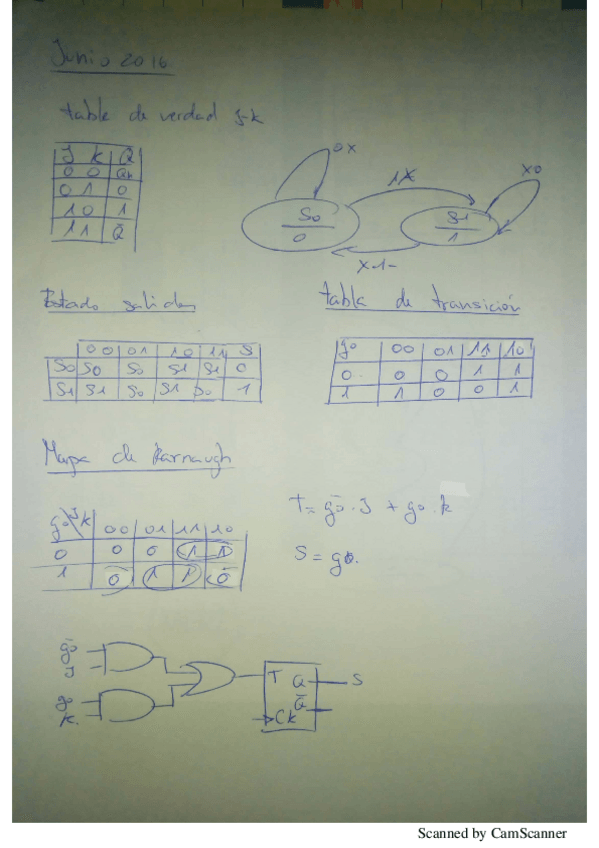 Junio 2016
table de verdad J-K
J K Q
0 0 Qn
0 1 0
1 0 1
1 1 Q̄
0X
1X
X0
S0
0
S1
1
X1
Estado salidas
00 01 10 11 S
S0 S0 S0 S1 S1 0
S1 S1 S0 S1 S0 1
Tabla de transición
g0 00 01 11 10
0 0 0 1 1
1 1 0 0 1
Mapa de Karnaugh
g0\JK 00 01 11 10
0 0 0 1 1
1 0 1 1 0
T = ḡ0 · J + g0 · k
S = g0.
ḡ0
J
g0
K.
T Q S
Q̄
Ck
Scanned by CamScanner